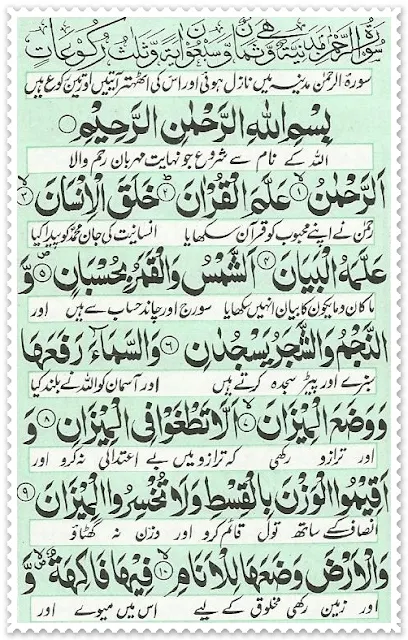 سُوۡرَةُ الرَّحۡمٰنِ مَدَنِيَّةٌ وَّهِيَ ثَمَانٌ وَّسَبۡعُوۡنَ اٰيَةً وَّثَلٰثُ رُكُوۡعَاتٍ
سورۃ الرحمٰن مدنیہ میں نازل ہوئی اور اس کی اٹھتر آیتیں اور تین رکوع ہیں
بِسۡمِ اللهِ الرَّحۡمٰنِ الرَّحِيۡمِ ○
اللہ کے نام سے شروع جو نہایت مہربان رحم والا
اَلرَّحۡمٰنُ ۙ﴿۱﴾ عَلَّمَ الۡقُرۡاٰنَ ؕ﴿۲﴾ خَلَقَ الۡاِنۡسَانَ ۙ﴿۳﴾
رحمٰن نے اپنے محبوب کو قرآن سکھایا انسانیت کی جان محمد کو پیدا کیا
عَلَّمَهُ الۡبَيَانَ ﴿۴﴾ اَلشَّمۡسُ وَالۡقَمَرُ بِحُسۡبَانٍ ﴿۵﴾ وَّ
ماکان ومایکون کا بیان انہیں سکھایا سورج اور چاند حساب سے ہیں اور
النَّجۡمُ وَالشَّجَرُ يَسۡجُدٰنِ ﴿۶﴾ وَالسَّمَآءَ رَفَعَهَا
سبزے اور پیڑ سجدہ کرتے ہیں اور آسمان کو اللہ نے بلند کیا
وَوَضَعَ الۡمِيۡزَانَ ۙ﴿۷﴾ اَلَّا تَطۡغَوۡا فِى الۡمِيۡزَانِ ﴿۸﴾ وَ
اور ترازو رکھی کہ ترازو میں بے اعتدالی نہ کرو اور
اَقِيۡمُوا الۡوَزۡنَ بِالۡقِسۡطِ وَلَا تُخۡسِرُوا الۡمِيۡزَانَ ﴿۹﴾
انصاف کے ساتھ تول قائم کرو اور وزن نہ گھٹاؤ
وَالۡاَرۡضَ وَضَعَهَا لِلۡاَنَامِ ۙ﴿۱۰﴾ فِيۡهَا فَاكِهَةٌ ۙ وَّ
اور زمین رکھی مخلوق کے لیے اس میں میوے اور